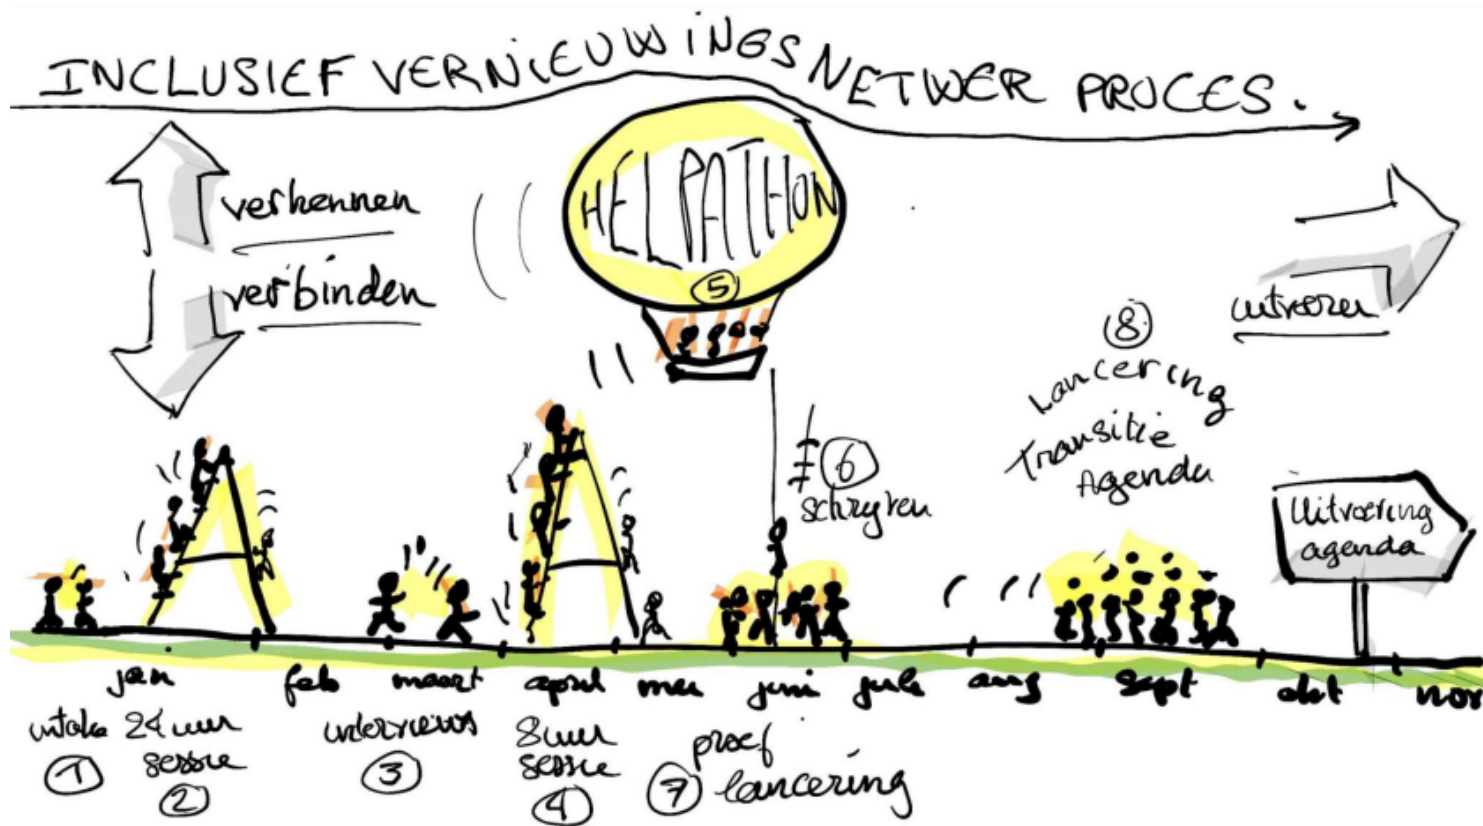 INCLUSIEF VERNIEUWINGSNETWER PROCES.
verkennen
verbinden
HELPATHON
5
uitvoeren
8
Lancering
Transitie
Agenda
6
schrijven
Uitvoering
agenda
jan feb maart april mei juni juli aug sept okt nov
intake 24 uur sessie
1 2
interviews
3
8 uur
sessie
4
proef
7 lancering